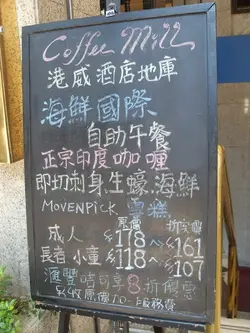 Coffee Mill
港威酒店地庫
海鮮國際
自助午餐
正宗印度咖喱
即切刺身生蠔.海鮮
MOVENPICK 雪糕
原價 折實價
成人 $178 ~ $161
長者 小童 $118 ~ $107
滙豐咭可享8折優惠
另收原價加一服務費